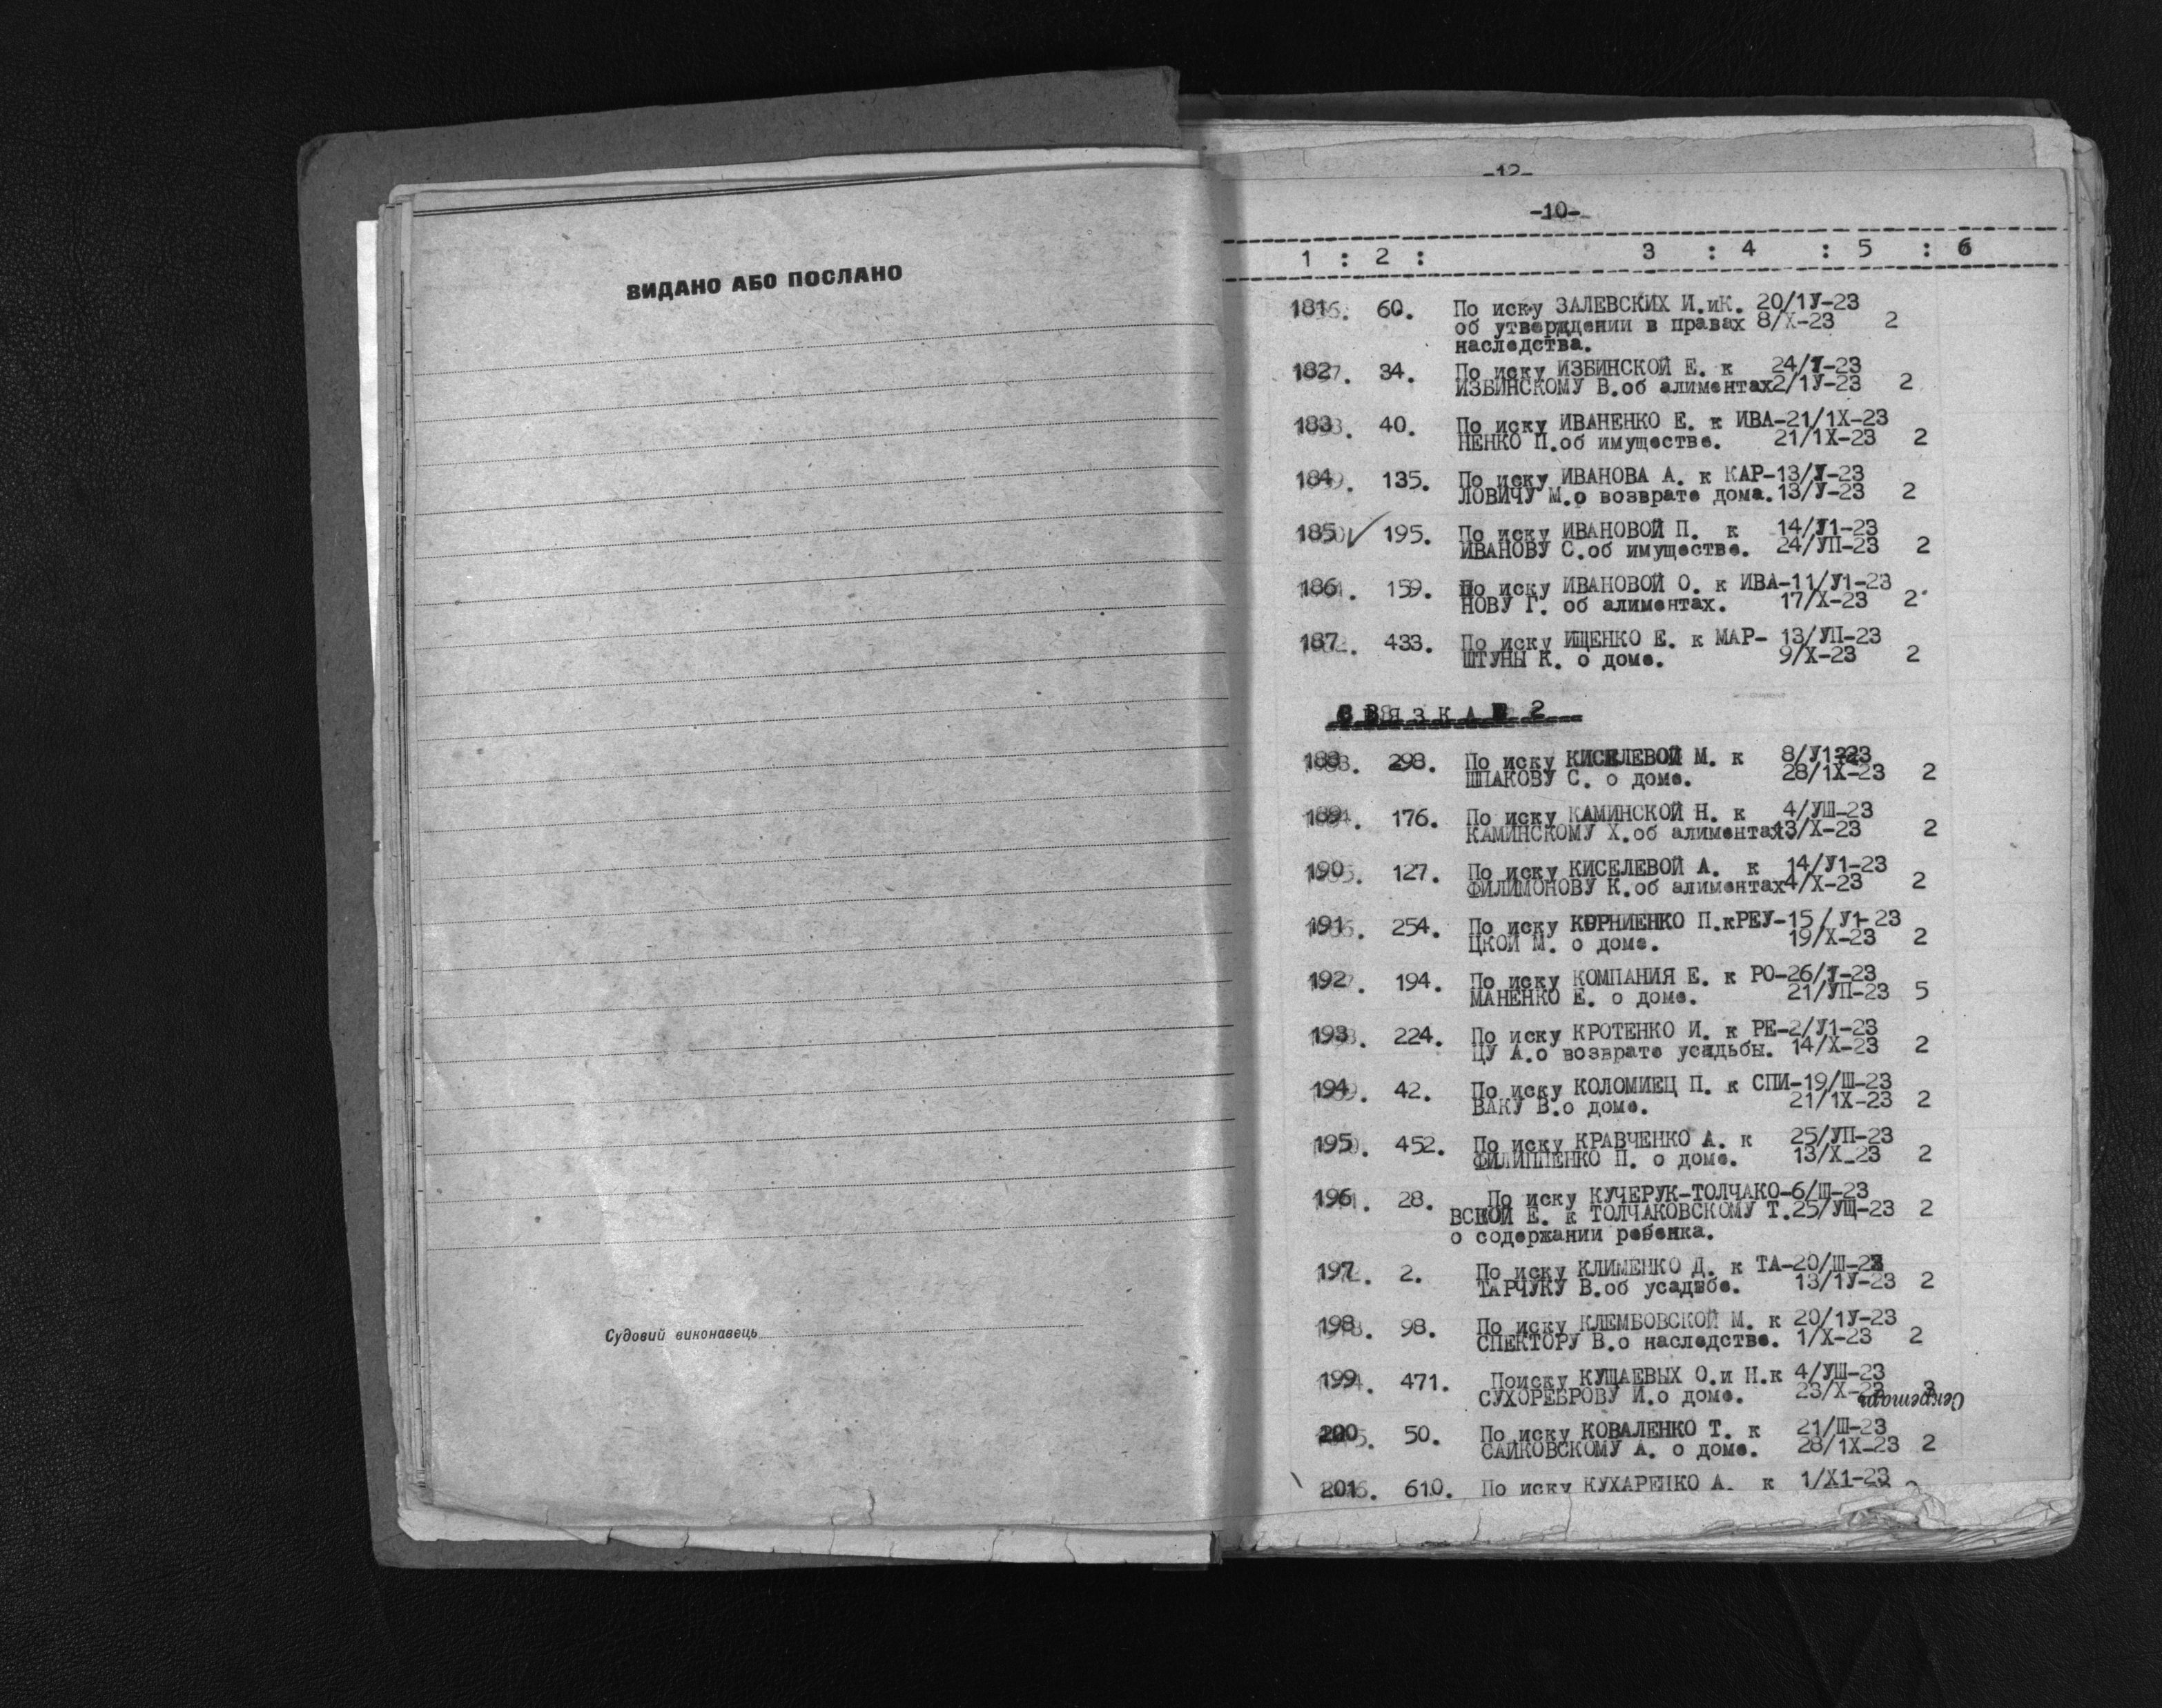 ВИДАНО АБО ПОСЛАНО
Судовий виконавець
-12-
-10-
1 : 2 : 3 : 4 : 5 : 6
181. 60. По иску ЗАЛЕВСКИХ И.иК. 20/1У-23
об утверждении в правах 8/Х-23 2
наследства.
182. 34. По иску ИЗБИНСКОЙ Е. к 24/У-23
ИЗБИНСКОМУ В.об алиментах2/1У-23 2
183. 40. По иску ИВАНЕНКО Е. к ИВА-21/1Х-23
НЕНКО П.об имуществе. 21/1Х-23 2
184. 135. По иску ИВАНОВА А. к КАР-13/У-23
ЛОВИЧУ М.о возврате дома.13/У-23 2
185 195. По иску ИВАНОВОЙ П. к 14/У1-23
ИВАНОВУ С.об имуществе. 24/УП-23 2
186. 159. По иску ИВАНОВОЙ О. к ИВА-11/У1-23
НОВУ Г. об алиментах. 17/Х-23 2
187. 433. По иску ИЩЕНКО Е. к МАР- 13/УП-23
ШТУНЫ К. о доме. 9/Х-23 2
С В Я З К А 2
188. 298. По иску КИСЕЛЕВОЙ М. к 8/У1-23
ШПАКОВУ С. о доме. 28/1Х-23 2
189. 176. По иску КАМИНСКОЙ Н. к 4/УШ-23
КАМИНСКОМУ Х.об алиментах13/Х-23 2
190. 127. По иску КИСЕЛЕВОЙ А. к 14/У1-23
ФИЛИМОНОВУ К.об алиментах4/Х-23 2
191. 254. По иску КОРНИЕНКО П.кРЕУ-15/У1-23
ЦКОЙ М. о доме. 19/Х-23 2
192. 194. По иску КОМПАНИЯ Е. к РО-26/У-23
МАНЕНКО Е. о доме. 21/УП-23 5
193. 224. По иску КРОТЕНКО И. к РЕ-2/У1-23
ЦУ А.о возврате усадьбы. 14/Х-23 2
194. 42. По иску КОЛОМИЕЦ П. к СПИ-19/Ш-23
ВАКУ В.о доме. 21/1Х-23 2
195. 452. По иску КРАВЧЕНКО А. к 25/УП-23
ФИЛИППЕНКО П. о доме. 13/Х-23 2
196. 28. По иску КУЧЕРУК-ТОЛЧАКО-6/Ш-23
ВСКОЙ Е. к ТОЛЧАКОВСКОМУ Т.25/УЩ-23 2
о содержании ребенка.
197. 2. По иску КЛИМЕНКО Д. к ТА-20/Ш-23
ТАРЧУКУ В.об усадьбе. 13/1У-23 2
198. 98. По иску КЛЕМБОВСКОЙ М. к 20/1У-23
СПЕКТОРУ В.о наследстве. 1/Х-23 2
199. 471. Поиску КУЩАЕВЫХ О.и Н.к 4/УШ-23
СУХОРЕБРОВУ И.о доме. 23/Х-23
Секретарь
200. 50. По иску КОВАЛЕНКО Т. к 21/Ш-23
САЙКОВСКОМУ А. о доме. 28/1Х-23 2
201. 610. По иску КУХАРЕНКО А. к 1/Х1-23